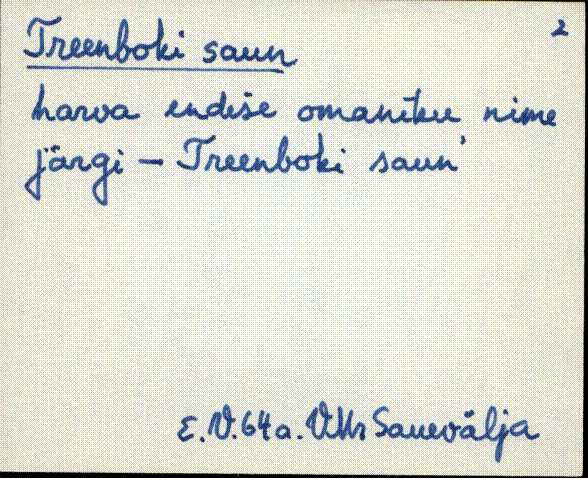 2
Treenboki saun
harva endise omaniku nime
järgi – Treenboki saun'
E.V.64a. VMr Sauevälja